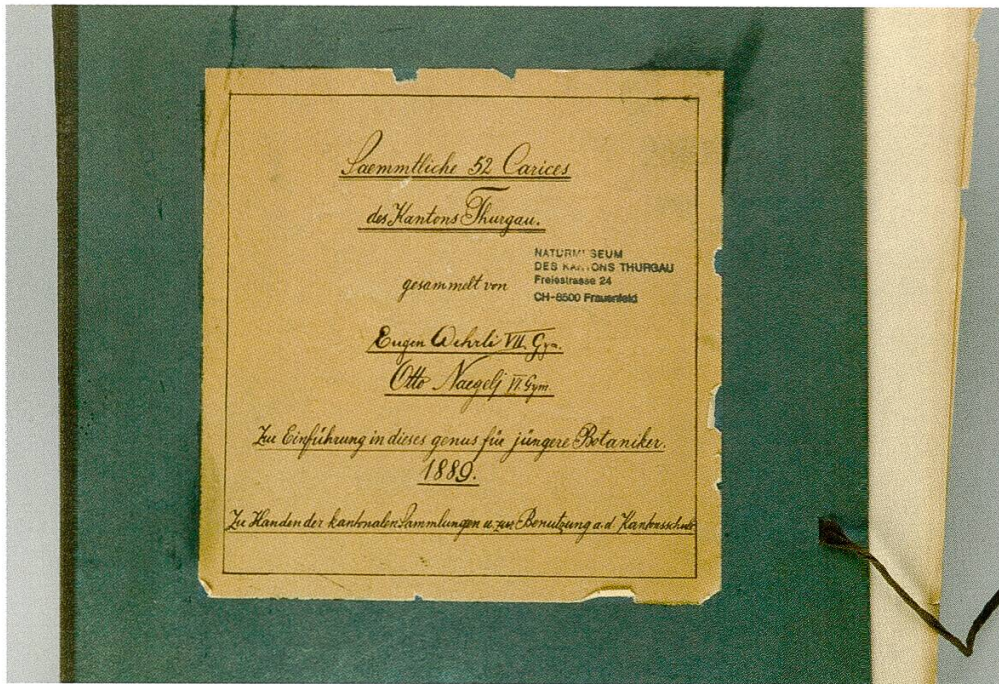 Saemmtliche 52 Carices
des Kantons Thurgau.
gesammelt von
NATURMUSEUM
DES KANTONS THURGAU
Freiestrasse 24
CH-8500 Frauenfeld
Eugen Wehrli VII. Gym.
Otto Naegeli VI. Gym.
Zu Einführung in dieses genus für jüngere Botaniker.
1889.
Zu Handen der kantonalen Sammlungen u. zur Benutzung a.d. Kantonsschule